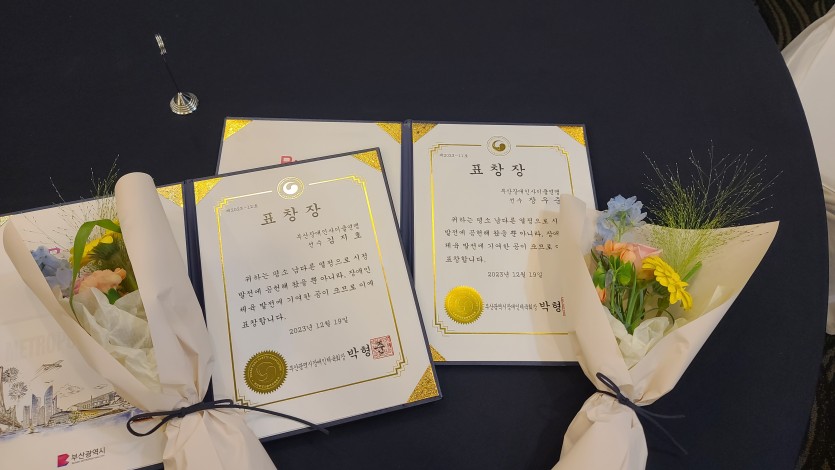 제2023-12호
표창장
부산장애인사이클연맹
선수 김지호
귀하는 평소 남다른 열정으로 시정
발전에 공헌해 왔을 뿐 아니라, 장애인
체육 발전에 기여한 공이 크므로 이에
표창합니다.
2023년 12월 19일
부산광역시장애인체육회장 박형준
제2023-11호
표창장
부산장애인사이클연맹
선수 장우준
귀하는 평소 남다른 열정으로 시
발전에 공헌해 왔을 뿐 아니라, 장애
체육 발전에 기여한 공이 크므로
표창합니다.
2023년 12월 19일
부산광역시장애인체육회장 박형
부산광역시